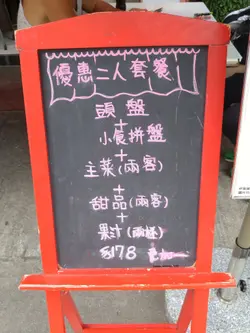 優惠二人套餐
頭盤
+
小食拼盤
+
主菜(兩客)
+
甜品(兩客)
+
果汁(兩杯)
$178